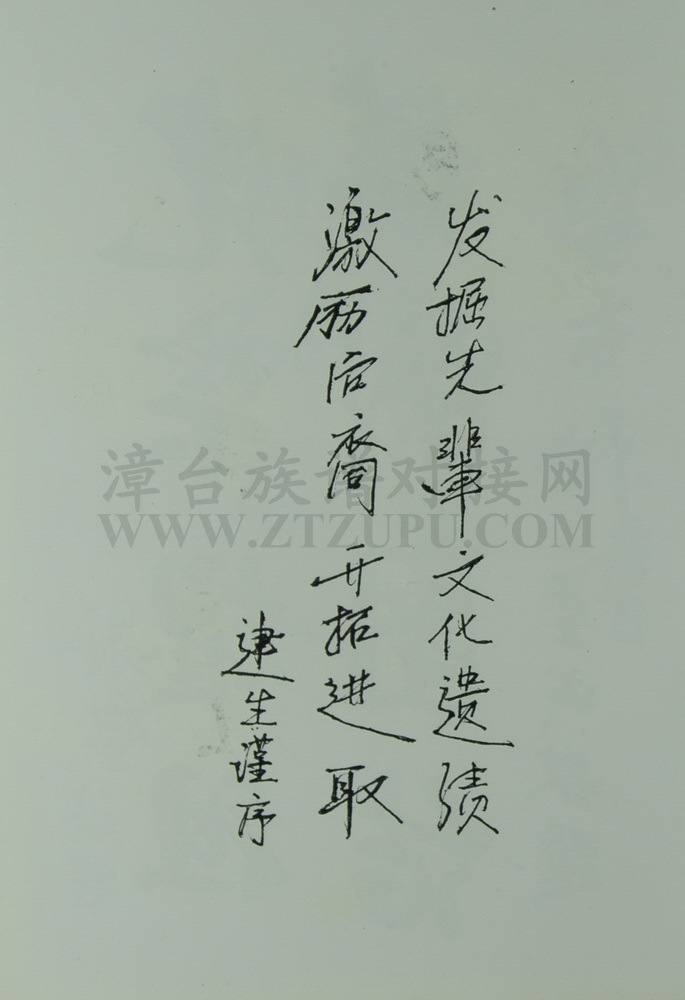 发掘先辈文化遗绩
激励后裔开拓进取
建生谨序
漳台族谱对接网
WWW.ZTZUPU.COM